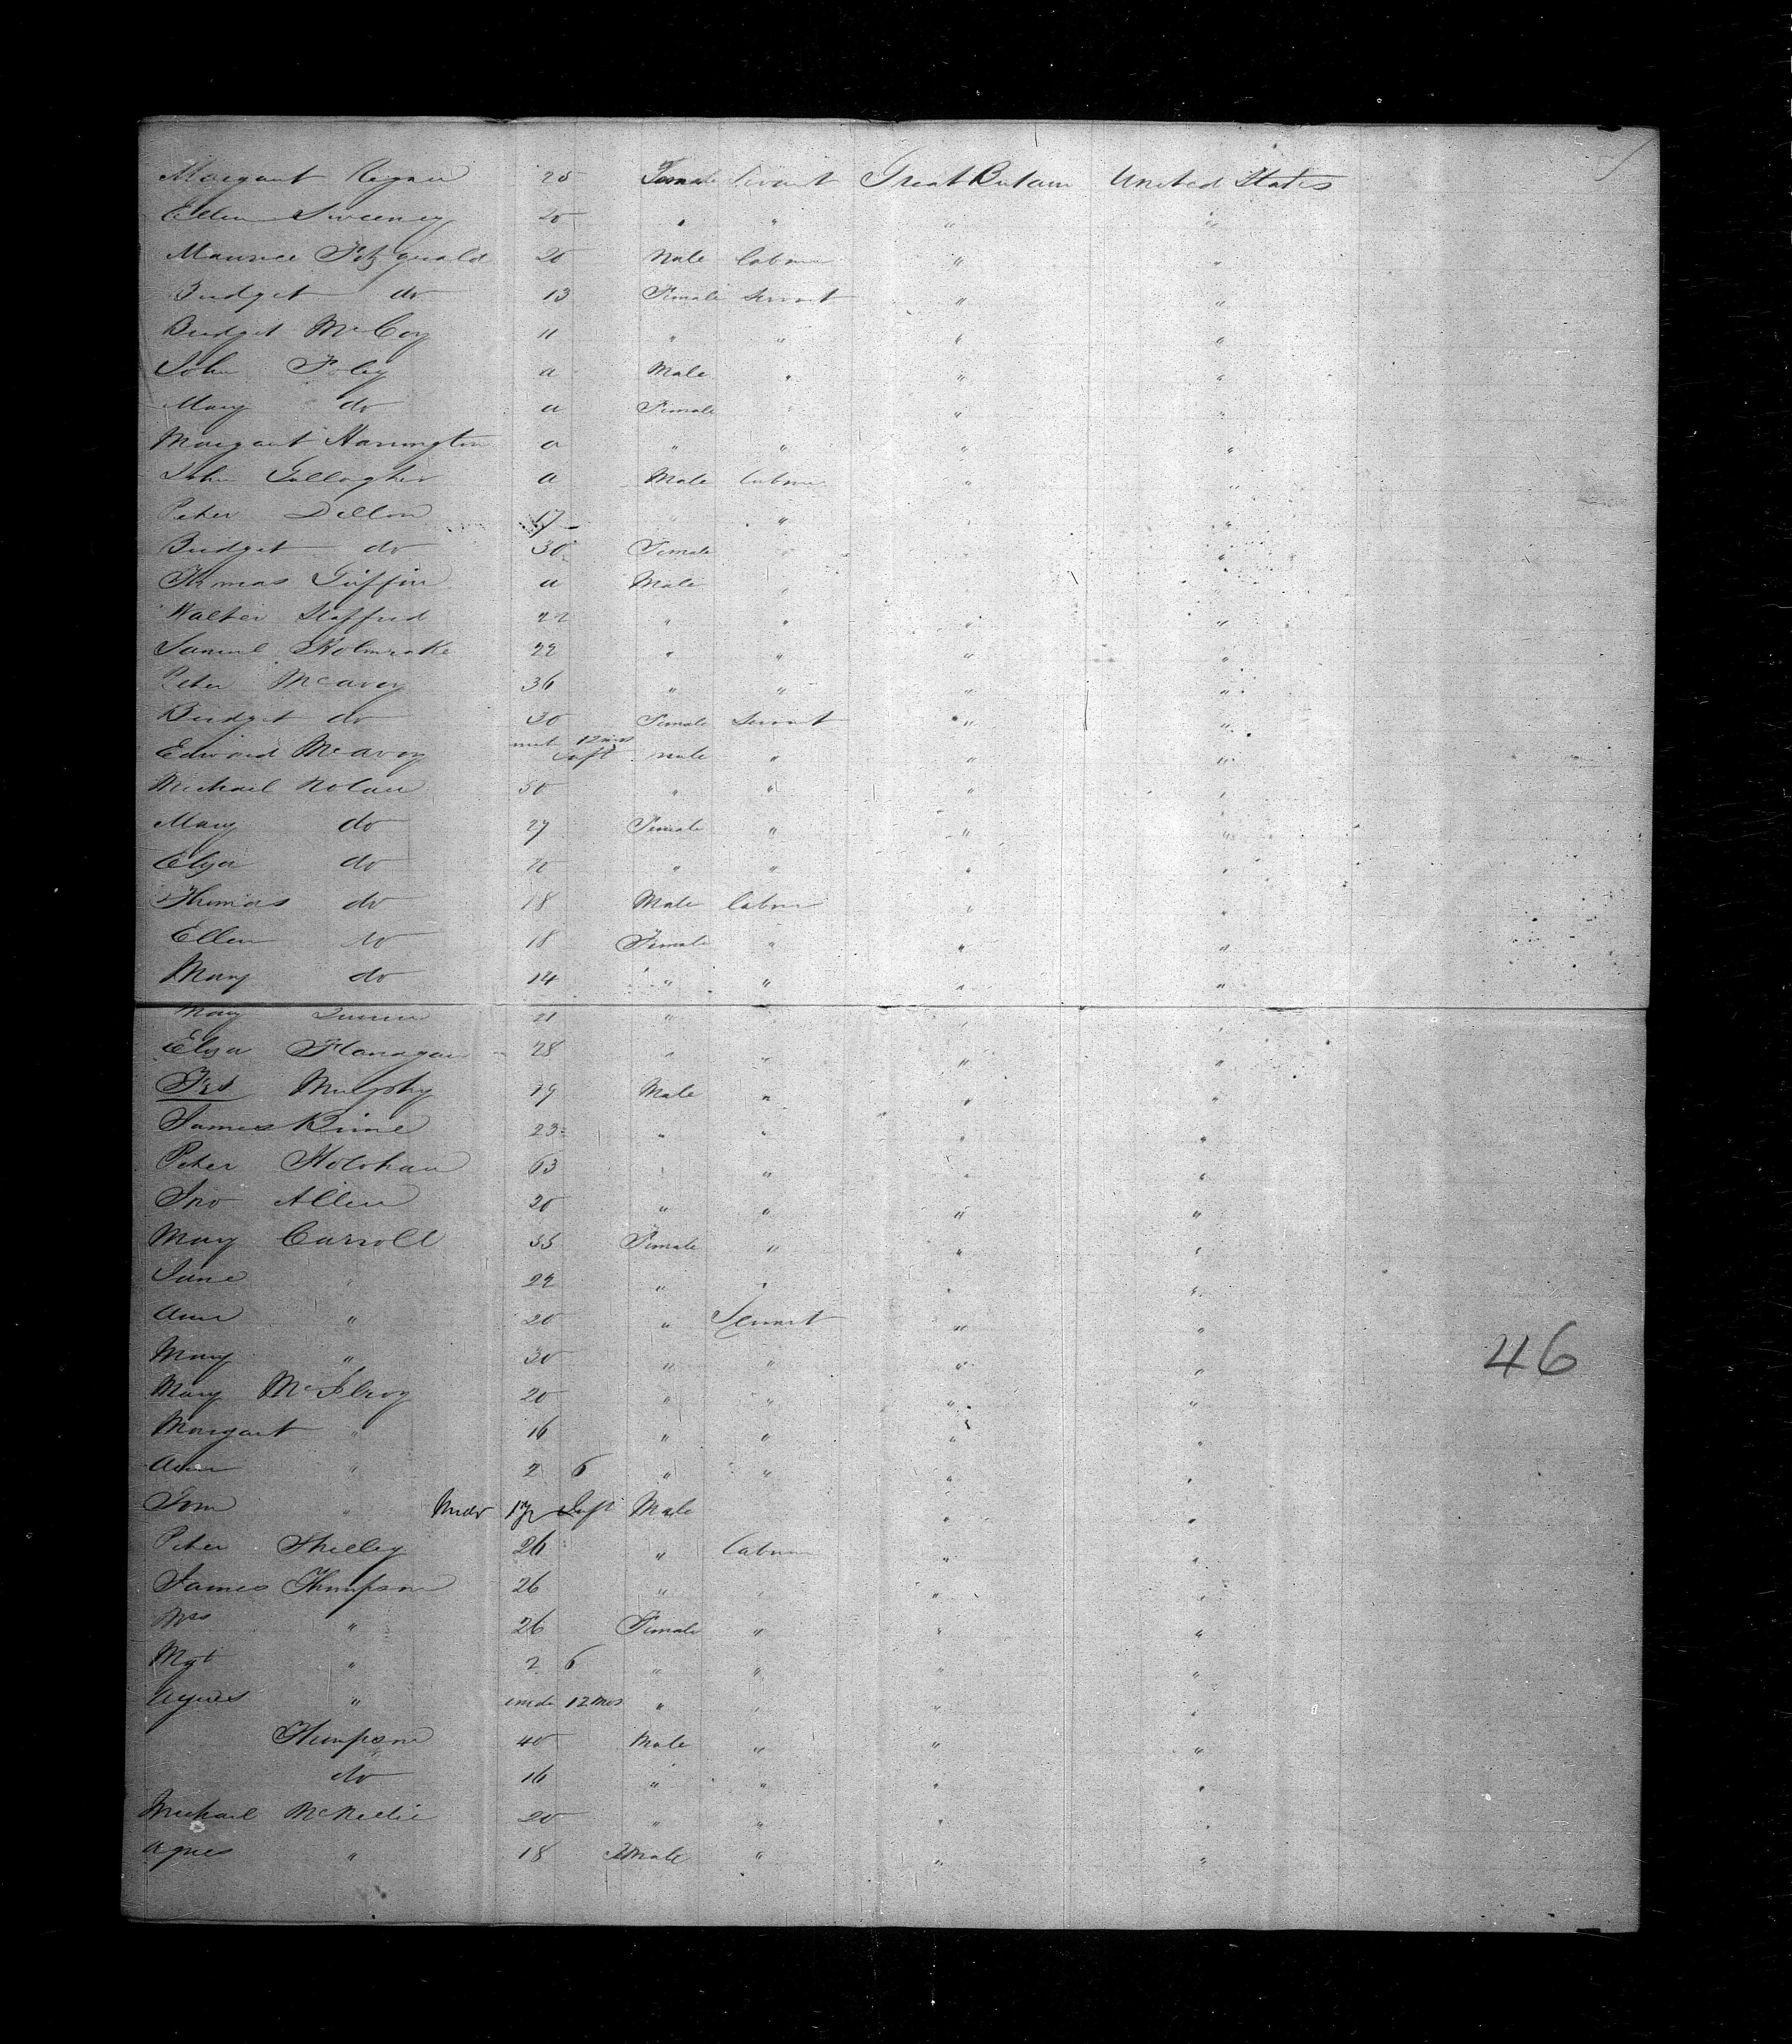 Margaret Regan 20 Female Servant Great Britain United States
Ellen Sweeney 20 " " " "
Maurice Fitzgerald 20 Male Labourer " "
Bridget do 13 Female Servant " "
Bridget McCoy 11 " " " "
John Foley a Male " " "
Mary do a Female " " "
Margaret Harrington a " " " "
John Gallagher a Male Labour " "
Peter Dillon 17 " " " "
Bridget do 30 Female " " "
Thomas Griffin a Male " " "
Walter Stafford 22 " " " "
Samuel 22 " " " "
Peter McAvoy 36 " " " "
Bridget do 30 Female Servant " "
Edward McAvoy 12 mos Inft male " " "
Michael Nolan 50 " " " "
Mary do 27 Female " " "
Eliza do " " " "
Thomas do 18 Male Labour " "
Ellen do 18 Female " " "
Mary do 14 " " " "
Mary 21 " " " "
Eliza Flanagan 28 " " " "
Murphy 19 Male " " "
James 23 " " " "
Peter Holohan 63 " " " "
Jno Allen 20 " " " "
Mary Carroll 35 Female " " "
Jane " 22 " " " "
Ann " 20 " Servant " "
Mary " 30 " " " "
Mary McIlroy 20 " " " "
Margaret " 16 " " " "
Ann " 2 6 " " " "
Tom " Under 1 yr Inft Male " "
Peter Shelley 26 " Labour " "
James Thompson 26 " " " "
Mrs " 26 Female " " "
Mgt " 2 6 " " " "
Agnes " under 12 mos " " " "
Thompson 40 Male " " "
do 16 " " " "
Michael 20 " " " "
Agnes " 18 Female " " "
46